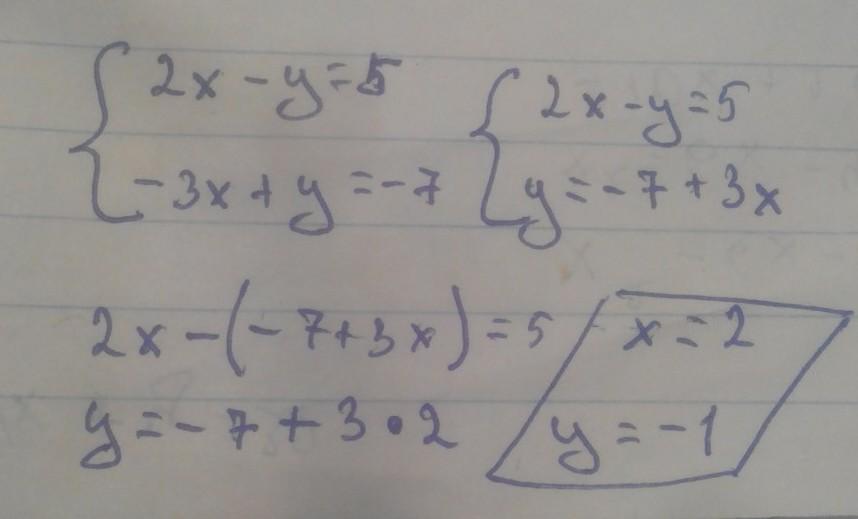 2x - y = 5
-3x + y = -7
2x - y = 5
y = -7 + 3x
2x - (-7 + 3x) = 5
y = -7 + 3 • 2
x = 2
y = -1